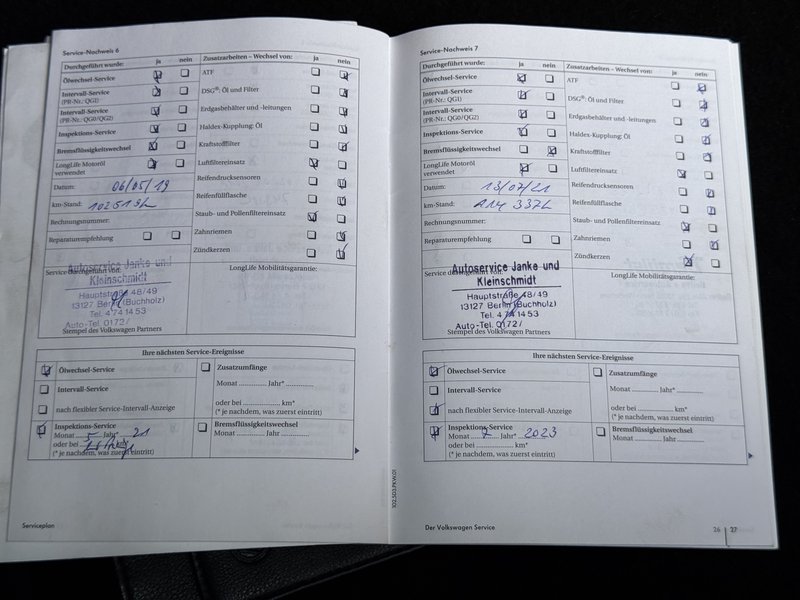 Service-Nachweis 6
Durchgeführt wurde: ja nein
Ölwechsel-Service
Intervall-Service
(PR-Nr.: QG1)
Intervall-Service
(PR-Nr.: QG0/QG2)
Inspektions-Service
Bremsflüssigkeitswechsel
LongLife Motoröl
verwendet
Datum: 06/05/19
km-Stand: 102519
Rechnungsnummer:
Reparaturempfehlung
Service durchgeführt von:
Autoservice Janke und
Kleinschmidt
Hauptstraße 48/49
13127 Berlin (Buchholz)
Tel. 4 74 14 53
Auto-Tel. 0172/
Stempel des Volkswagen Partners
Zusatzarbeiten – Wechsel von: ja nein
ATF
DSG®: Öl und Filter
Erdgasbehälter und -leitungen
Haldex-Kupplung: Öl
Kraftstofffilter
Luftfiltereinsatz
Reifendrucksensoren
Reifenfüllflasche
Staub- und Pollenfiltereinsatz
Zahnriemen
Zündkerzen
LongLife Mobilitätsgarantie:
Ihre nächsten Service-Ereignisse
Ölwechsel-Service
Intervall-Service
nach flexibler Service-Intervall-Anzeige
Inspektions-Service
Monat 5 Jahr 21
oder bei km*
(* je nachdem, was zuerst eintritt)
Zusatzumfänge
Monat ............ Jahr* ............
oder bei ................ km*
(* je nachdem, was zuerst eintritt)
Bremsflüssigkeitswechsel
Monat ............ Jahr ............
Serviceplan
Service-Nachweis 7
Durchgeführt wurde: ja nein
Ölwechsel-Service
Intervall-Service
(PR-Nr.: QG1)
Intervall-Service
(PR-Nr.: QG0/QG2)
Inspektions-Service
Bremsflüssigkeitswechsel
LongLife Motoröl
verwendet
Datum: 13/07/21
km-Stand: 114 337
Rechnungsnummer:
Reparaturempfehlung
Service durchgeführt von:
Autoservice Janke und
Kleinschmidt
Hauptstraße 48/49
13127 Berlin (Buchholz)
Tel. 4 74 14 53
Auto-Tel. 0172/
Stempel des Volkswagen Partners
Zusatzarbeiten – Wechsel von: ja nein
ATF
DSG®: Öl und Filter
Erdgasbehälter und -leitungen
Haldex-Kupplung: Öl
Kraftstofffilter
Luftfiltereinsatz
Reifendrucksensoren
Reifenfüllflasche
Staub- und Pollenfiltereinsatz
Zahnriemen
Zündkerzen
LongLife Mobilitätsgarantie:
Ihre nächsten Service-Ereignisse
Ölwechsel-Service
Intervall-Service
nach flexibler Service-Intervall-Anzeige
Inspektions-Service
Monat 7 Jahr* 2023
oder bei ................ km*
(* je nachdem, was zuerst eintritt)
Zusatzumfänge
Monat ............ Jahr* ............
oder bei ................ km*
(* je nachdem, was zuerst eintritt)
Bremsflüssigkeitswechsel
Monat ............ Jahr ............
Der Volkswagen Service
26 27